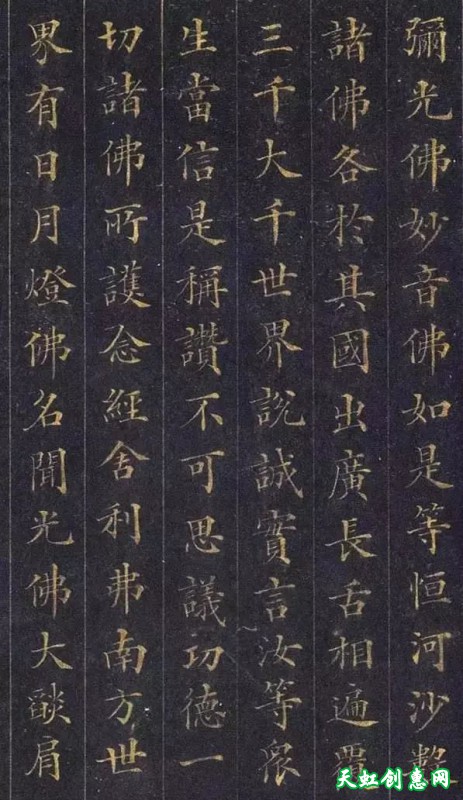 彌光佛妙音佛如是等恒河沙數
諸佛各於其國出廣長舌相遍覆
三千大千世界說誠實言汝等眾
生當信是稱讚不可思議功德一
切諸佛所護念經舍利弗南方世
界有日月燈佛名聞光佛大燄肩
天虹创惠网